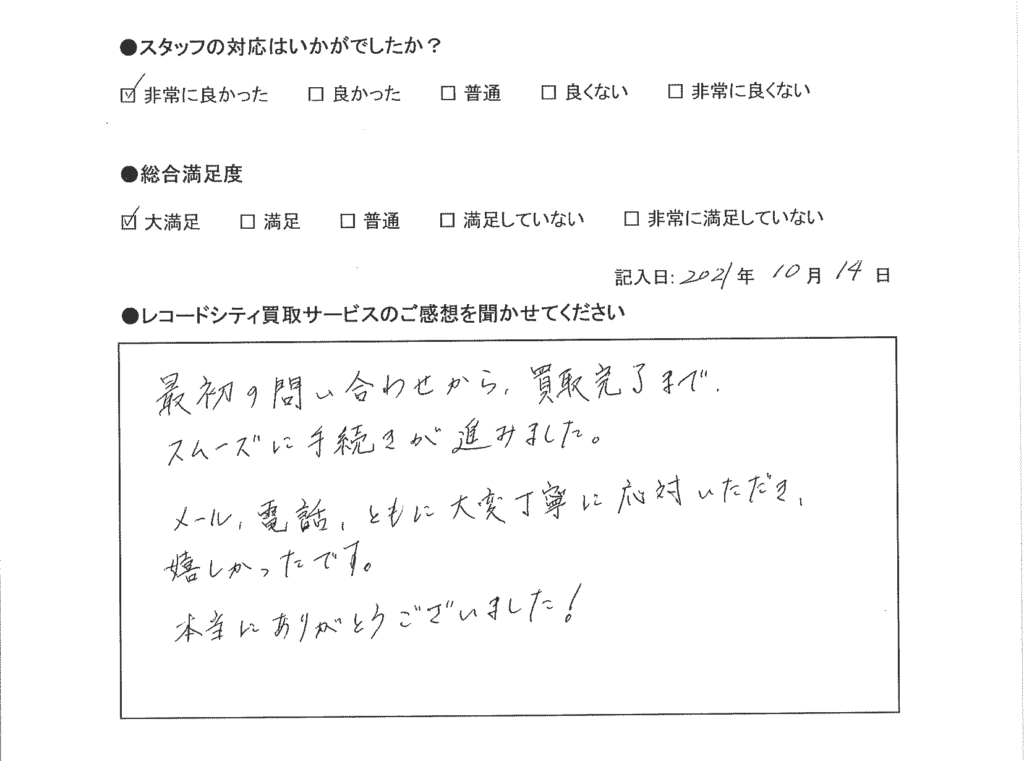 ●スタッフの対応はいかがでしたか？
☑ 非常に良かった □ 良かった □ 普通 □ 良くない □ 非常に良くない
●総合満足度
☑ 大満足 □ 満足 □ 普通 □ 満足していない □ 非常に満足していない
記入日: 2021 年 10 月 14 日
●レコードシティ買取サービスのご感想を聞かせてください
最初の問い合わせから、買取完了まで、
スムーズに手続きが進みました。
メール、電話、ともに大変丁寧に応対いただき、
嬉しかったです。
本当にありがとうございました！